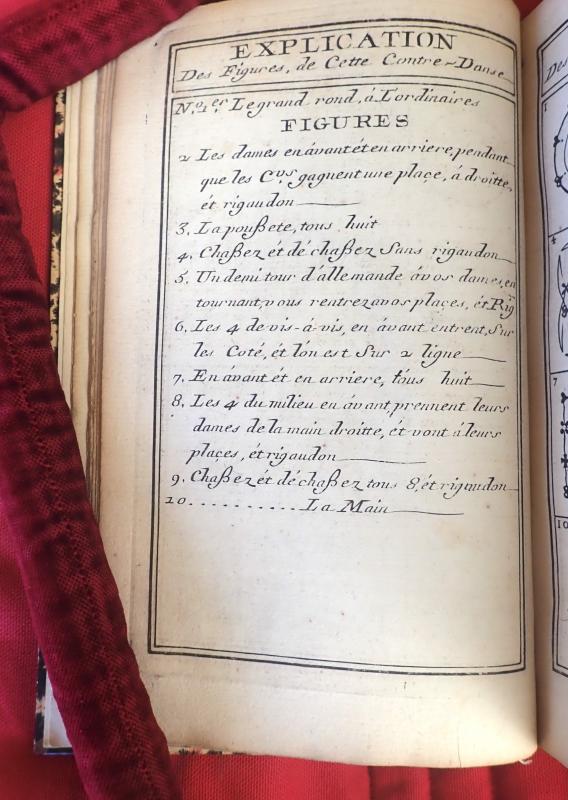 EXPLICATION
Des Figures, de Cette Contre-Danse
N.º 1.er Le grand rond, á L'ordinaires
FIGURES
2 Les dames en ávant ét en arriere, pendant
que les C.vs gagnent une plaçe, á droitte,
ét rigaudon
3. La poußete, tous huit
4. Chaßez ét dé chaßez Sans rigaudon
5. Un demi tour d'allemande ávos dames, en
tournant, vous rentrez avos plaçes, ét Rig
6. Les 4 de vis-á-vis, en ávant entrent, Sur
les Coté, ét l'on est Sur 2 ligne
7. En ávant ét en arriere, tous huit
8. Les 4 du milieu en ávant, prennent leurs
dames de la main droitte, ét vont á leurs
plaçes, ét rigaudon
9. Chaßez ét dé chaßez tous 8, ét rigaudon
10. .......... La Main
Des
1
4
7
10